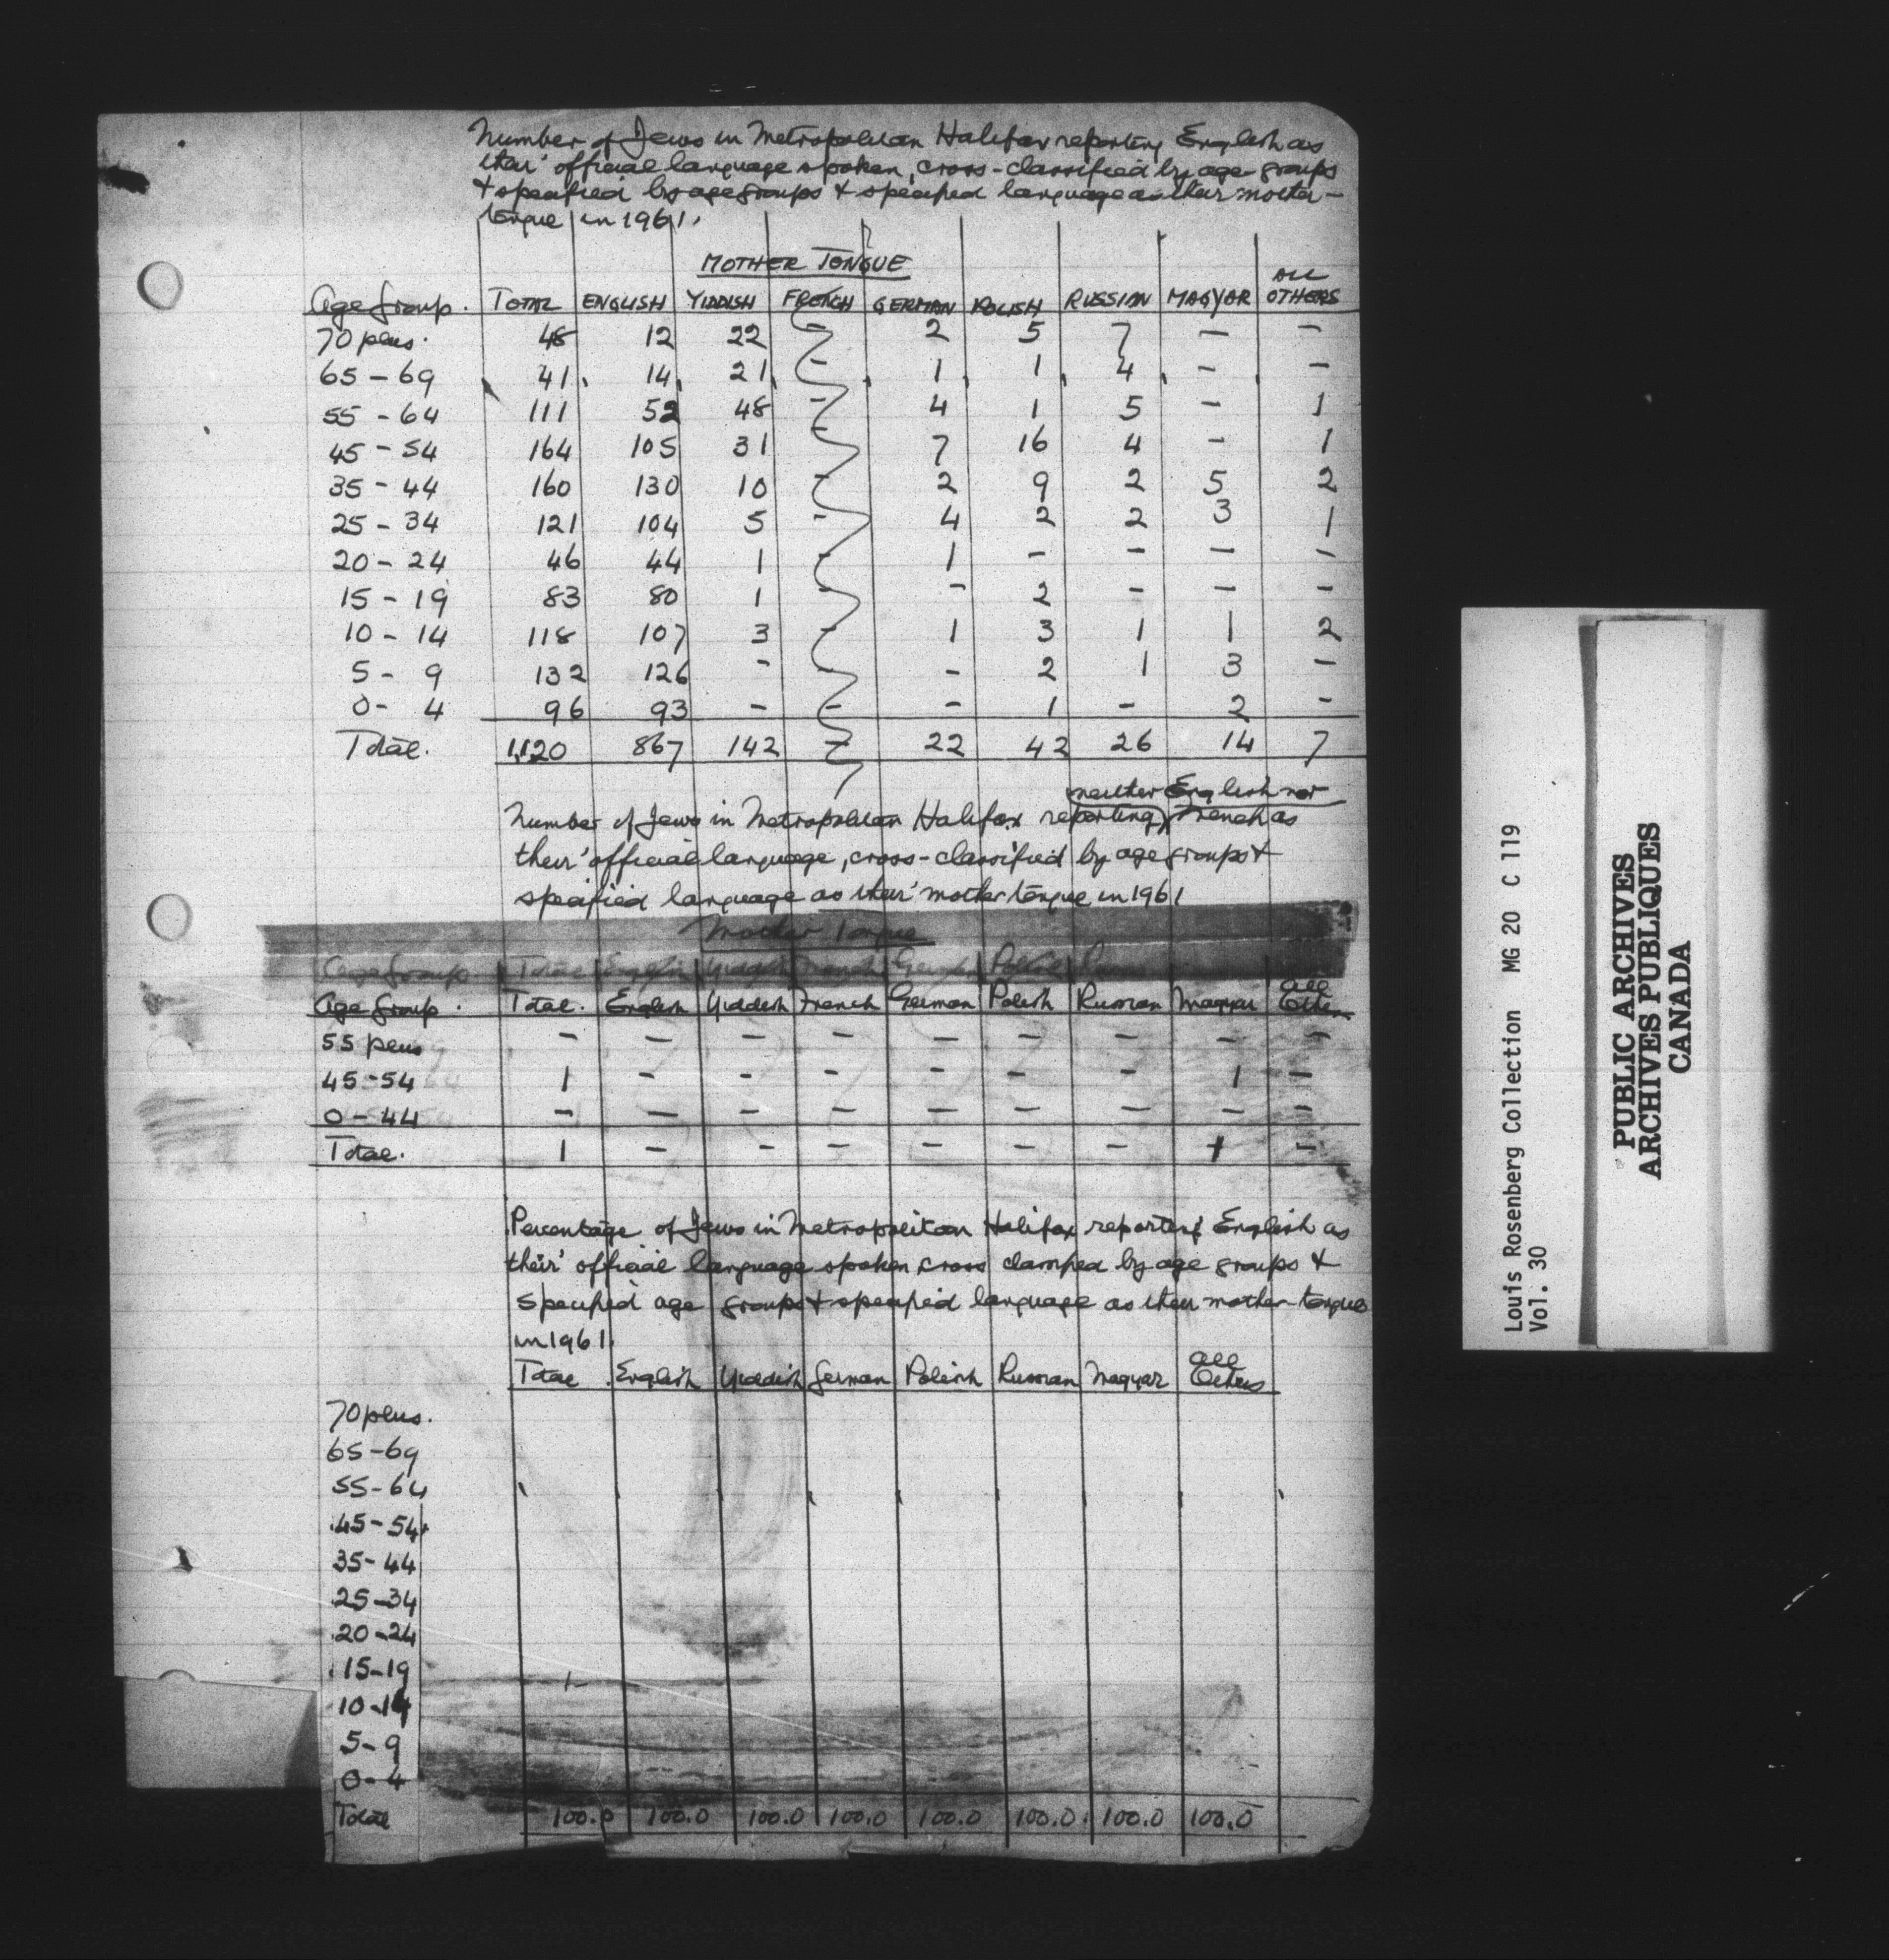 Number of Jews in Metropolitan Halifax reporting English as
their official language spoken, cross-classified by age groups
& specified by age groups & specified language as their mother-
tongue in 1961.
MOTHER TONGUE
Age Group. TOTAL ENGLISH YIDDISH FRENCH GERMAN POLISH RUSSIAN MAGYAR ALL OTHERS
70 plus. 48 12 22 - 2 5 7 - -
65-69 41 14 21 - 1 1 4 - -
55-64 111 52 48 - 4 1 5 - 1
45-54 164 105 31 7 16 4 - 1
35-44 160 130 10 - 2 9 2 5 2
25-34 121 104 5 - 4 2 2 3 1
20-24 46 44 1 - 1 - - - -
15-19 83 80 1 - - 2 - - -
10-14 118 107 3 - 1 3 1 1 2
5-9 132 126 - - - 2 1 3 -
0-4 96 93 - - - 1 - 2 -
Total. 1,120 867 142 - 22 42 26 14 7
neither English nor
Number of Jews in Metropolitan Halifax reporting French as
their official language, cross-classified by age groups &
specified language as their mother tongue in 1961
Mother Tongue
Age Group Total English Yiddish French German Polish Russ
Age Group. Total. English Yiddish French German Polish Russian Magyar All Others
55 plus - - - - - - - - -
45-54 1 - - - - - - 1 -
0-44 - - - - - - - - -
Total. 1 - - - - - - 1 -
Percentage of Jews in Metropolitan Halifax reporting English as
their official language spoken cross classified by age groups &
specified age groups & specified language as their mother-tongue
in 1961.
Total English Yiddish German Polish Russian Magyar All Others
70 plus.
65-69
55-64
45-54
35-44
25-34
20-24
15-19
10-14
5-9
0-4
Total 100.0 100.0 100.0 100.0 100.0 100.0 100.0 100.0
Louis Rosenberg Collection MG 20 C 119
Vol. 30
PUBLIC ARCHIVES
ARCHIVES PUBLIQUES
CANADA